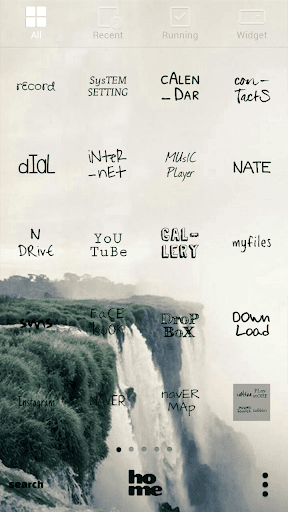 All Recent Running Widget
record
SysTEM
SETTING
cALEN
_DAR
con-
TactS
dIaL
iNteR
_net
MUsIC
Player
NATE
N
DRivE
YoU
TuBe
GAL-
LERY
myfiles
sms
FaCE
BOOK
DroP
BoX
DOWN
Load
Instagram
NAVER
navER
MAp
search
ho
me